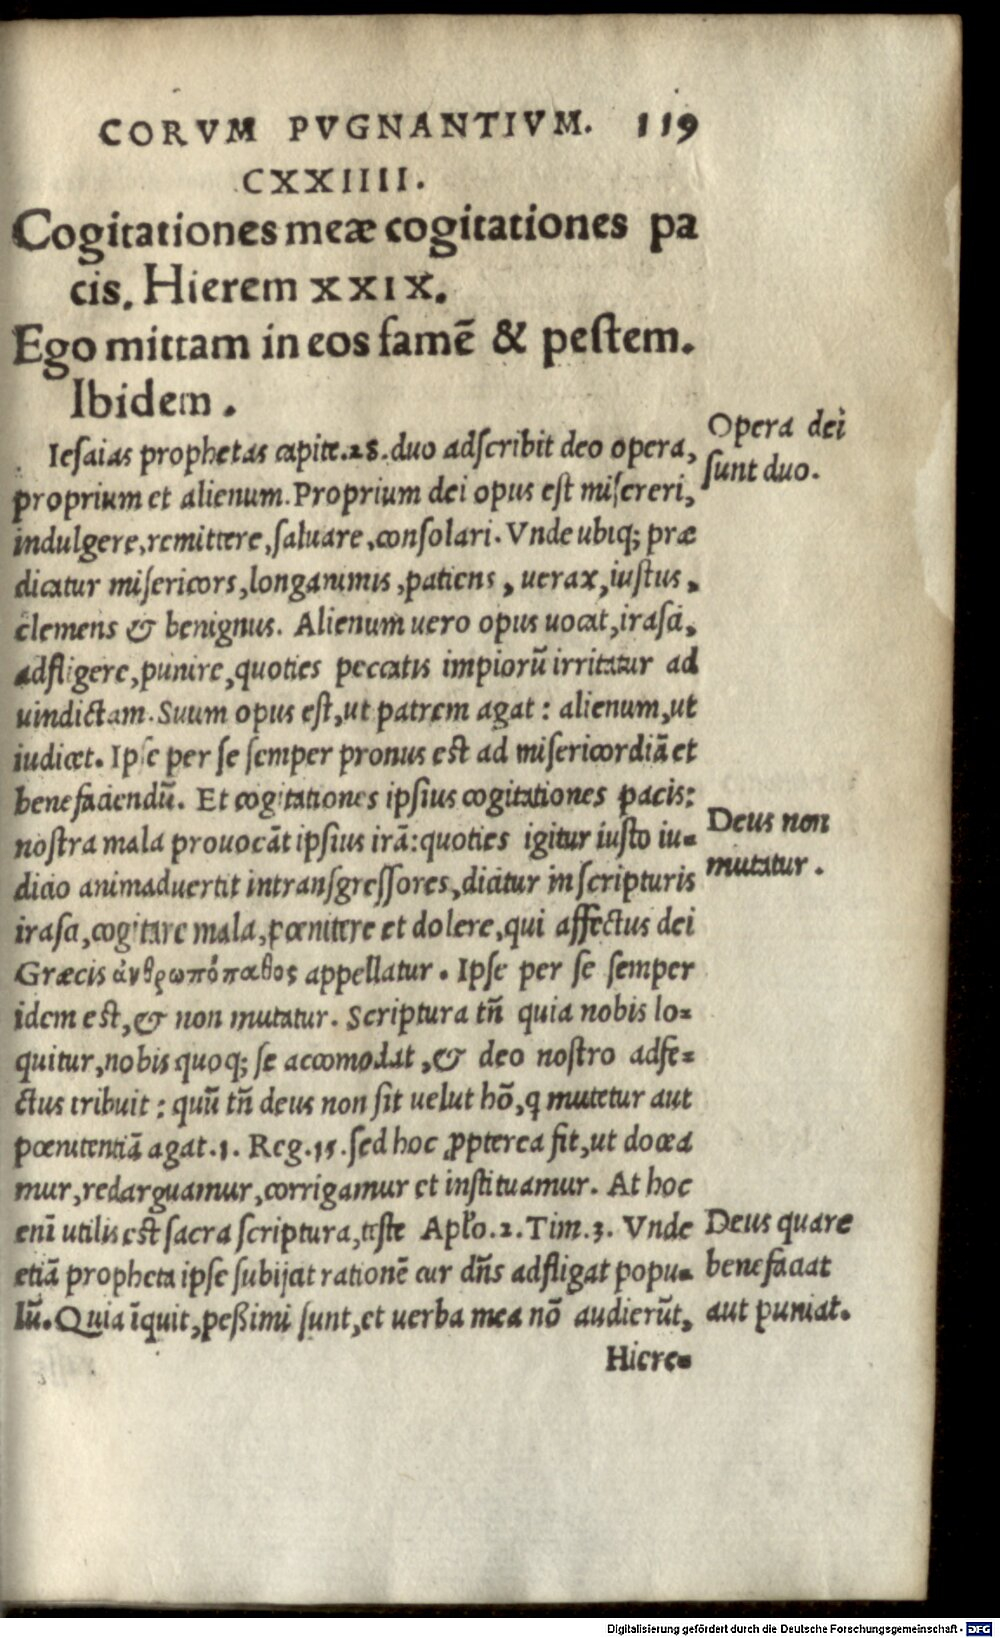 CORVM PVGNANTIVM. 119
CXXIIII.
Cogitationes meæ cogitationes pa
cis. Hierem XXIX.
Ego mittam in eos famē & pestem.
Ibidem.
Opera dei
sunt duo.
Iesaias prophetas capite.28.duo adscribit deo opera,
proprium et alienum. Proprium dei opus est misereri,
indulgere,remittere,saluare,consolari. Vnde ubiq; præ
dicatur misericors,longanimis,patiens, uerax,iustus,
clemens & benignus. Alienum uero opus uocat,irasci,
adfligere,punire,quoties peccatis impiorū irritatur ad
uindictam. Suum opus est,ut patrem agat: alienum,ut
iudicet. Ipse per se semper pronus est ad misericordiā et
benefaciendū. Et cogitationes ipsius cogitationes pacis:
Deus non
mutatur.
nostra mala prouocāt ipsius irā:quoties igitur iusto iu-
dicio animaduertit intransgressores,dicitur in scripturis
irasci,cogitare mala,pœnitere et dolere,qui affectus dei
Græcis ἀνθρωπόπαθος appellatur. Ipse per se semper
idem est,& non mutatur. Scriptura tñ quia nobis lo-
quitur,nobis quoq; se accomodat,& deo nostro adfe-
ctus tribuit: quū tñ deus non sit uelut hō,q mutetur aut
pœnitentiā agat.1. Reg.15.sed hoc ꝓpterea fit,ut docea
mur,redarguamur,corrigamur et instituamur. At hoc
enī utilis est sacra scriptura,teste Apło.2.Tim.3. Vnde
Deus quare
benefaciat
aut puniat.
etiā propheta ipse subijcit rationē cur dñs adfligat popu-
lū. Quia īquit,peßimi sunt,et uerba mea nō audierūt,
Hiere-
Digitalisierung gefördert durch die Deutsche Forschungsgemeinschaft - DFG